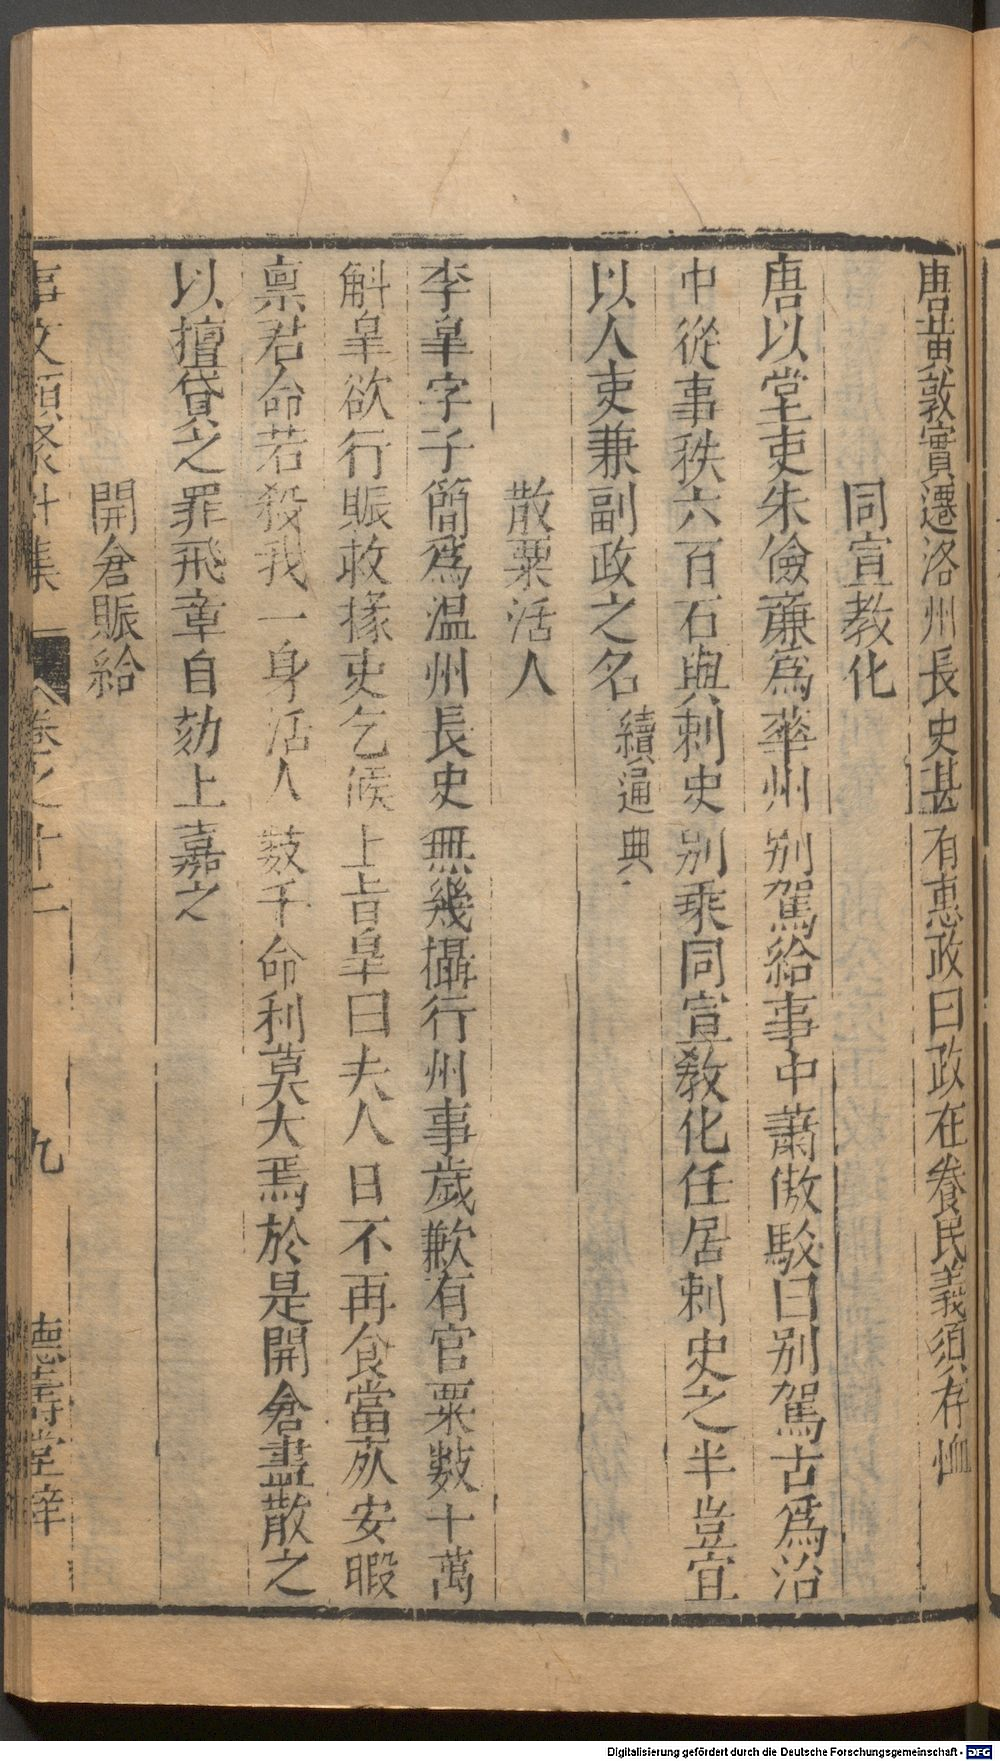 唐黄敦實遷洛州長史甚有惠政曰政在養民義須存恤
同宣教化
唐以堂吏朱儉兼爲華州別駕給事中蕭倣駁曰別駕古爲治
中從事秩六百石與刺史別乘同宣教化任居刺史之半豈宜
以人吏兼副政之名續通典
散粟活人
李臯字子簡爲温州長史無幾攝行州事歲歉有官粟數十萬
斛臯欲行賑救掾吏乞候上旨臯曰夫人日不再食當死安暇
禀君命若殺我一身活人數千命利莫大焉於是開倉盡散之
以擅貸之罪飛章自劾上嘉之
開倉賑給
事文類聚外集 卷之十二 九 德壽堂梓
Digitalisierung gefördert durch die Deutsche Forschungsgemeinschaft - DFG